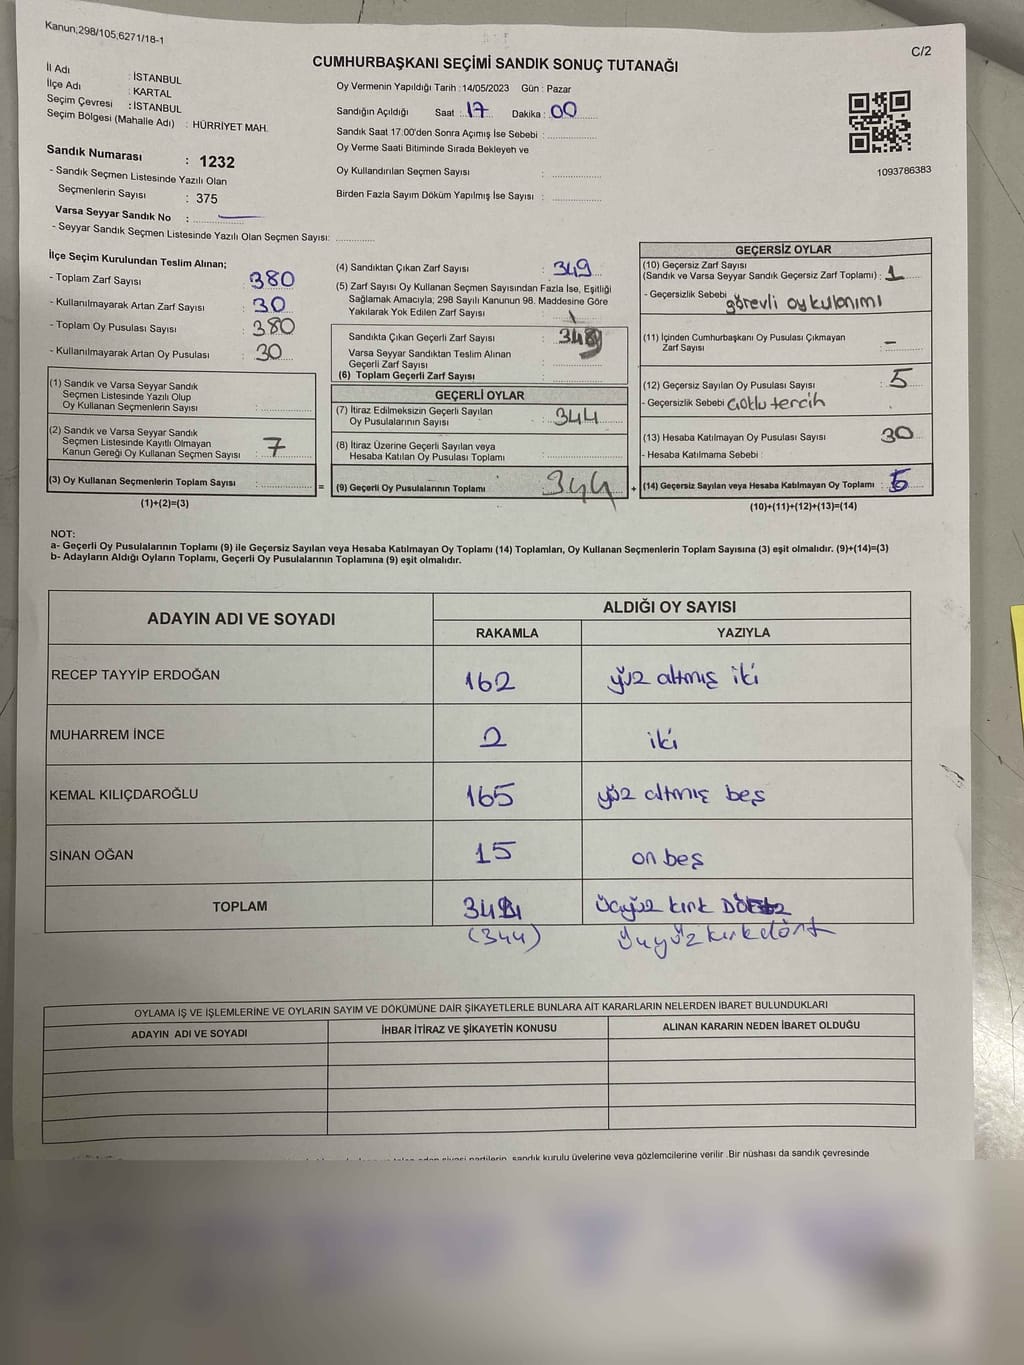 Kanun;298/105,6271/18-1
C/2
CUMHURBAŞKANI SEÇİMİ SANDIK SONUÇ TUTANAĞI
İl Adı : İSTANBUL
İlçe Adı : KARTAL
Seçim Çevresi : İSTANBUL
Seçim Bölgesi (Mahalle Adı) : HÜRRİYET MAH.
Sandık Numarası : 1232
- Sandık Seçmen Listesinde Yazılı Olan
Seçmenlerin Sayısı : 375
Varsa Seyyar Sandık No :
- Seyyar Sandık Seçmen Listesinde Yazılı Olan Seçmen Sayısı:
Oy Vermenin Yapıldığı Tarih : 14/05/2023 Gün : Pazar
Sandığın Açıldığı Saat : 17 Dakika : 00
Sandık Saat 17:00'den Sonra Açımış İse Sebebi :
Oy Verme Saati Bitiminde Sırada Bekleyen ve
Oy Kullandırılan Seçmen Sayısı :
Birden Fazla Sayım Döküm Yapılmış İse Sayısı :
1093786383
İlçe Seçim Kurulundan Teslim Alınan;
- Toplam Zarf Sayısı : 380
- Kullanılmayarak Artan Zarf Sayısı : 30
- Toplam Oy Pusulası Sayısı : 380
- Kullanılmayarak Artan Oy Pusulası : 30
(1) Sandık ve Varsa Seyyar Sandık
Seçmen Listesinde Yazılı Olup
Oy Kullanan Seçmenlerin Sayısı :
(2) Sandık ve Varsa Seyyar Sandık
Seçmen Listesinde Kayıtlı Olmayan
Kanun Gereği Oy Kullanan Seçmen Sayısı : 7
(3) Oy Kullanan Seçmenlerin Toplam Sayısı :
(1)+(2)=(3)
(4) Sandıktan Çıkan Zarf Sayısı : 349
(5) Zarf Sayısı Oy Kullanan Seçmen Sayısından Fazla İse, Eşitliği
Sağlamak Amacıyla; 298 Sayılı Kanunun 98. Maddesine Göre
Yakılarak Yok Edilen Zarf Sayısı :
Sandıkta Çıkan Geçerli Zarf Sayısı :
Varsa Seyyar Sandıktan Teslim Alınan
Geçerli Zarf Sayısı :
(6) Toplam Geçerli Zarf Sayısı :
GEÇERLİ OYLAR
(7) İtiraz Edilmeksizin Geçerli Sayılan
Oy Pusulasının Sayısı : 344
(8) İtiraz Üzerine Geçerli Sayılan veya
Hesaba Katılan Oy Pusulası Toplamı :
= (9) Geçerli Oy Pusulalarının Toplamı : 344 +
GEÇERSİZ OYLAR
(10) Geçersiz Zarf Sayısı
(Sandık ve Varsa Seyyar Sandık Geçersiz Zarf Toplamı) : 1
- Geçersizlik Sebebi görevli oy kulanımı
(11) İçinden Cumhurbaşkanı Oy Pusulası Çıkmayan
Zarf Sayısı : -
(12) Geçersiz Sayılan Oy Pusulası Sayısı : 5
- Geçersizlik Sebebi Çoklu tercih
(13) Hesaba Katılmayan Oy Pusulası Sayısı : 30
- Hesaba Katılmama Sebebi :
(14) Geçersiz Sayılan veya Hesaba Katılmayan Oy Toplamı : 5
(10)+(11)+(12)+(13)=(14)
NOT:
a- Geçerli Oy Pusulalarının Toplamı (9) ile Geçersiz Sayılan veya Hesaba Katılmayan Oy Toplamı (14) Toplamları, Oy Kullanan Seçmenlerin Toplam Sayısına (3) eşit olmalıdır. (9)+(14)=(3)
b- Adayların Aldığı Oyların Toplamı, Geçerli Oy Pusulalarının Toplamına (9) eşit olmalıdır.
ADAYIN ADI VE SOYADI
ALDIĞI OY SAYISI
RAKAMLA YAZIYLA
RECEP TAYYİP ERDOĞAN 162 yüz altmış iki
MUHARREM İNCE 2 iki
KEMAL KILIÇDAROĞLU 165 yüz altmış beş
SİNAN OĞAN 15 on beş
TOPLAM Üçyüz kırk
(344) Üçyüzkırkdört
OYLAMA İŞ VE İŞLEMLERİNE VE OYLARIN SAYIM VE DÖKÜMÜNE DAİR ŞİKAYETLERLE BUNLARA AİT KARARLARIN NELERDEN İBARET BULUNDUKLARI
ADAYIN ADI VE SOYADI İHBAR İTİRAZ VE ŞİKAYETİN KONUSU ALINAN KARARIN NEDEN İBARET OLDUĞU
siyasi partilerin, sandık kurulu üyelerine veya gözlemcilerine verilir .Bir nüshası da sandık çevresinde